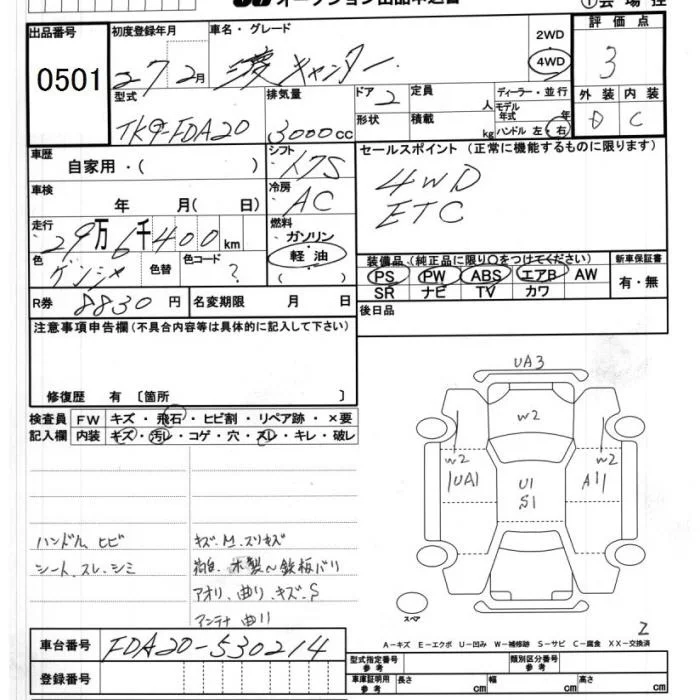 オークション出品申込書
①会場控
出品番号
0501
初度登録年月
27 2月
車名・グレード
三菱 キャンター
2WD
4WD
評価点
3
外装 内装
D C
型式
TKG-FDA20
排気量
3000cc
ドア 2
定員 人
形状
積載 kg
ディーラー・並行
モデル年式 年
ハンドル 左・右
車歴
自家用・( )
シフト
車検
年 月( 日)
冷房
AC
走行
29万6千400km
燃料
ガソリン
軽油
( )
色
ゲンシャ
色替
色コード
?
R券 8830円
名変期限 月 日
セールスポイント(正常に機能するものに限ります)
4WD
ETC
装備品(純正品に限り〇をつけてください)
PS PW ABS エアB AW
SR ナビ TV カワ
新車保証書
有・無
後日品
注意事項申告欄(不具合内容等は具体的に記入して下さい)
修復歴 有 〔箇所 〕
検査員記入欄
FW キズ・飛石・ヒビ割・リペア跡・×要
内装 キズ・汚レ・コゲ・穴・スレ・キレ・破レ
ハンドル ヒビ
シート、スレ、シミ
キズ、M、スリキズ
木製〜鉄板バリ
アオリ、曲り、キズ、S
アンテナ曲り
UA3
W2
W2
UA1
U1
S1
W2
A1
スペア
2
A-キズ E-エクボ U-凹み W-補修跡 S-サビ C-腐食 XX-交換済
車台番号
FDA20-530214
登録番号
型式指定番号参考
類別区分番号参考
車庫証明用参考
長さ cm
幅 cm
高さ cm